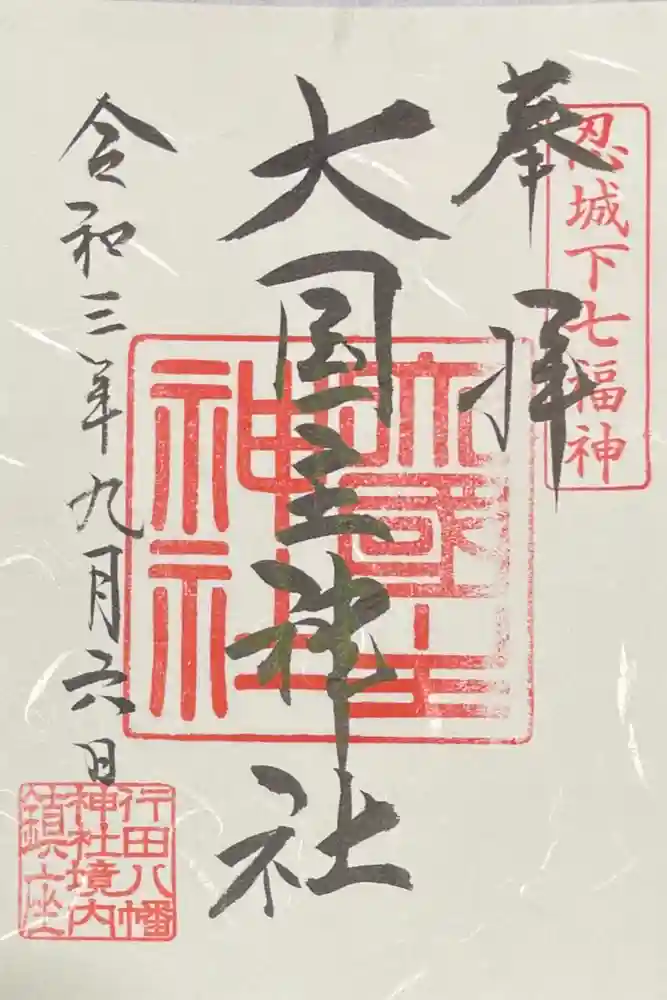 忍城下七福神
奉拝
大国主神社
大國主
神社
令和三年九月六日
行田八幡
神社境内
鎮座